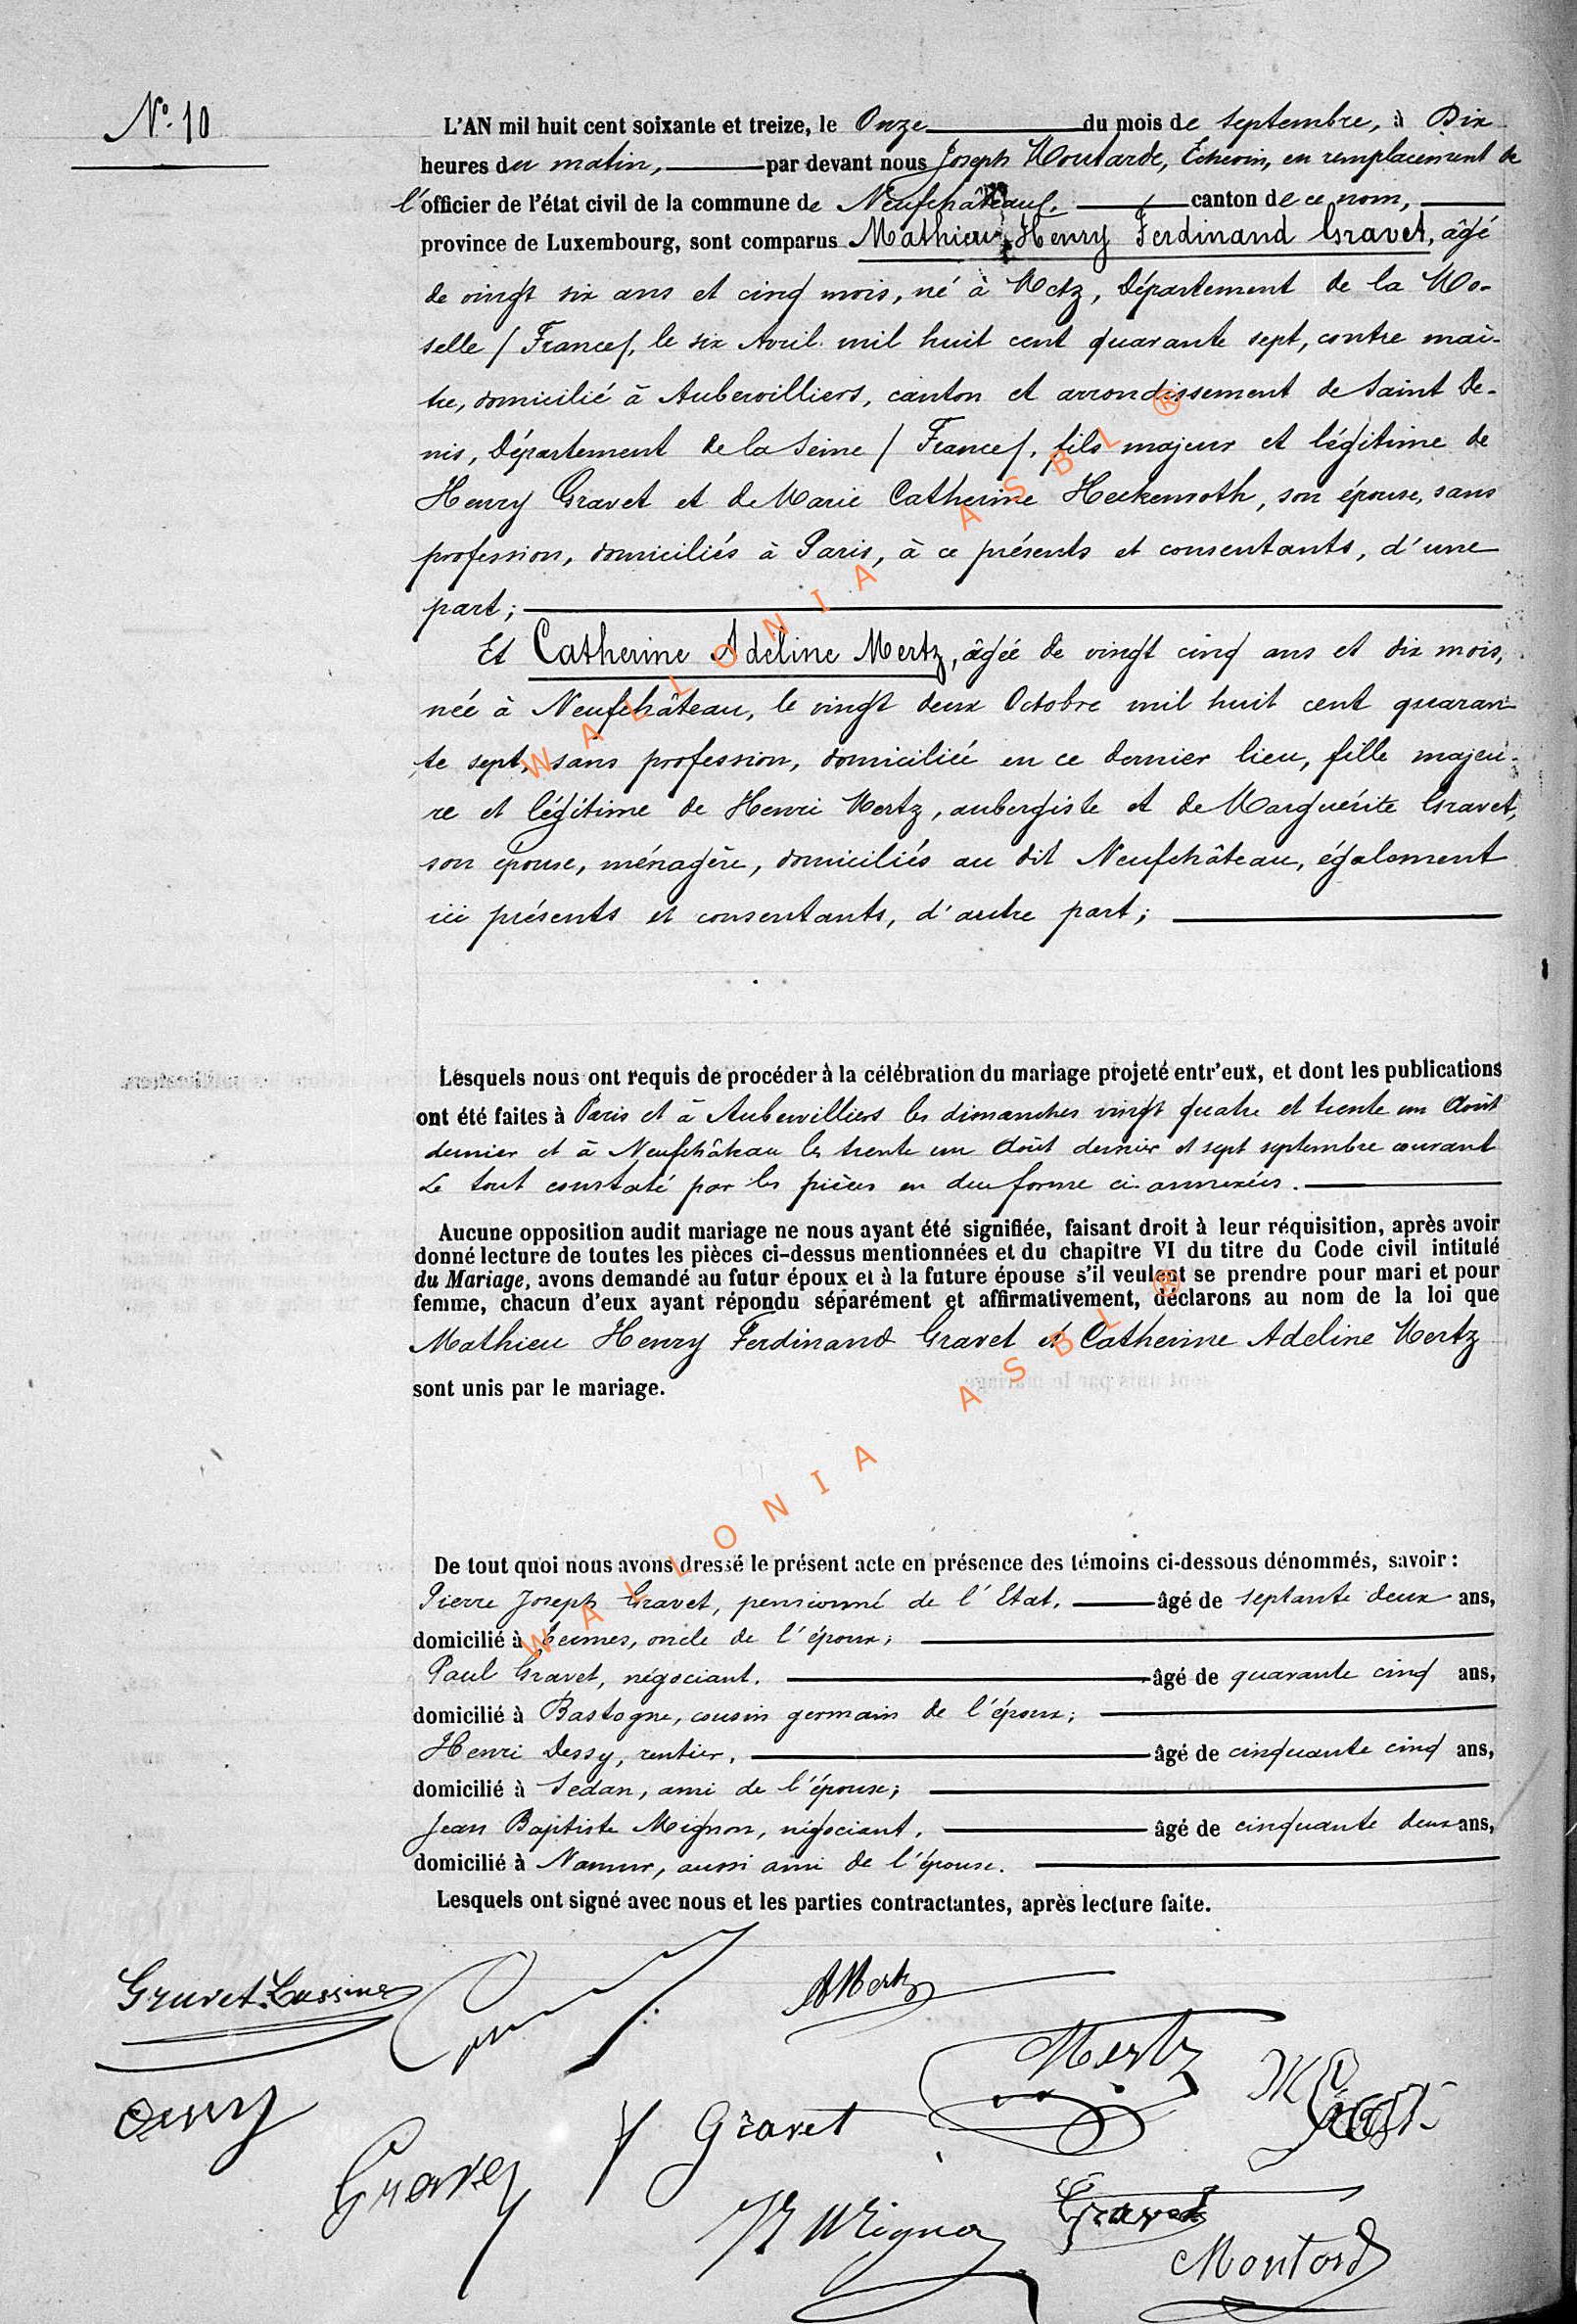 N° 10
L'AN mil huit cent soixante et treize, le Onze du mois de septembre, à Dix
heures du matin, par devant nous Joseph Moutarde, Echevin, en remplacement de
l'officier de l'état civil de la commune de Neufchâteau, canton de ce nom,
province de Luxembourg, sont comparus Mathieu Henry Ferdinand Gravet, âgé
de vingt six ans et cinq mois, né à Metz, Département de la Mo-
selle / France /, le six Avril mil huit cent quarante sept, contre maî-
tre, domicilié à Aubervilliers, canton et arrondissement de Saint De-
nis, Département de la Seine / France /, fils majeur et légitime de
Henry Gravet et de Marie Catherine Heckenroth, son épouse, sans
profession, domiciliés à Paris, à ce présents et consentants, d'une
part;
Et Catherine Adeline Mertz, âgée de vingt cinq ans et dix mois,
née à Neufchâteau, le vingt deux Octobre mil huit cent quaran-
te sept, sans profession, domiciliée en ce dernier lieu, fille majeu-
re et légitime de Henri Mertz, aubergiste et de Marguérite Gravet,
son épouse, ménagère, domiciliés au dit Neufchâteau, également
ici présents et consentants, d'autre part;
Lesquels nous ont requis de procéder à la célébration du mariage projeté entr'eux, et dont les publications
ont été faites à Paris et à Aubervilliers les dimanches vingt quatre et trente un Août
dernier et à Neufchâteau les trente un Août dernier et sept septembre courant
Le tout constaté par les pièces en due forme ci-annexées.
Aucune opposition audit mariage ne nous ayant été signifiée, faisant droit à leur réquisition, après avoir
donné lecture de toutes les pièces ci-dessus mentionnées et du chapitre VI du titre du Code civil intitulé
du Mariage, avons demandé au futur époux et à la future épouse s'il veulent se prendre pour mari et pour
femme, chacun d'eux ayant répondu séparément et affirmativement, déclarons au nom de la loi que
Mathieu Henry Ferdinand Gravet et Catherine Adeline Mertz
sont unis par le mariage.
De tout quoi nous avons dressé le présent acte en présence des témoins ci-dessous dénommés, savoir :
Pierre Joseph Gravet, pensionné de l'Etat, âgé de septante deux ans,
domicilié à oncle de l'époux;
Paul Gravet, négociant, âgé de quarante cinq ans,
domicilié à Bastogne, cousin germain de l'époux;
Henri Dessy, rentier, âgé de cinquante cinq ans,
domicilié à Sedan, ami de l'épouse;
Jean Baptiste Mignon, négociant, âgé de cinquante deux ans,
domicilié à Namur, aussi ami de l'épouse.
Lesquels ont signé avec nous et les parties contractantes, après lecture faite.
AMertz
Mertz
Gravet
Gravet
Gravet
JB Mignon
WALLONIA ASBL ®
WALLONIA ASBL ®